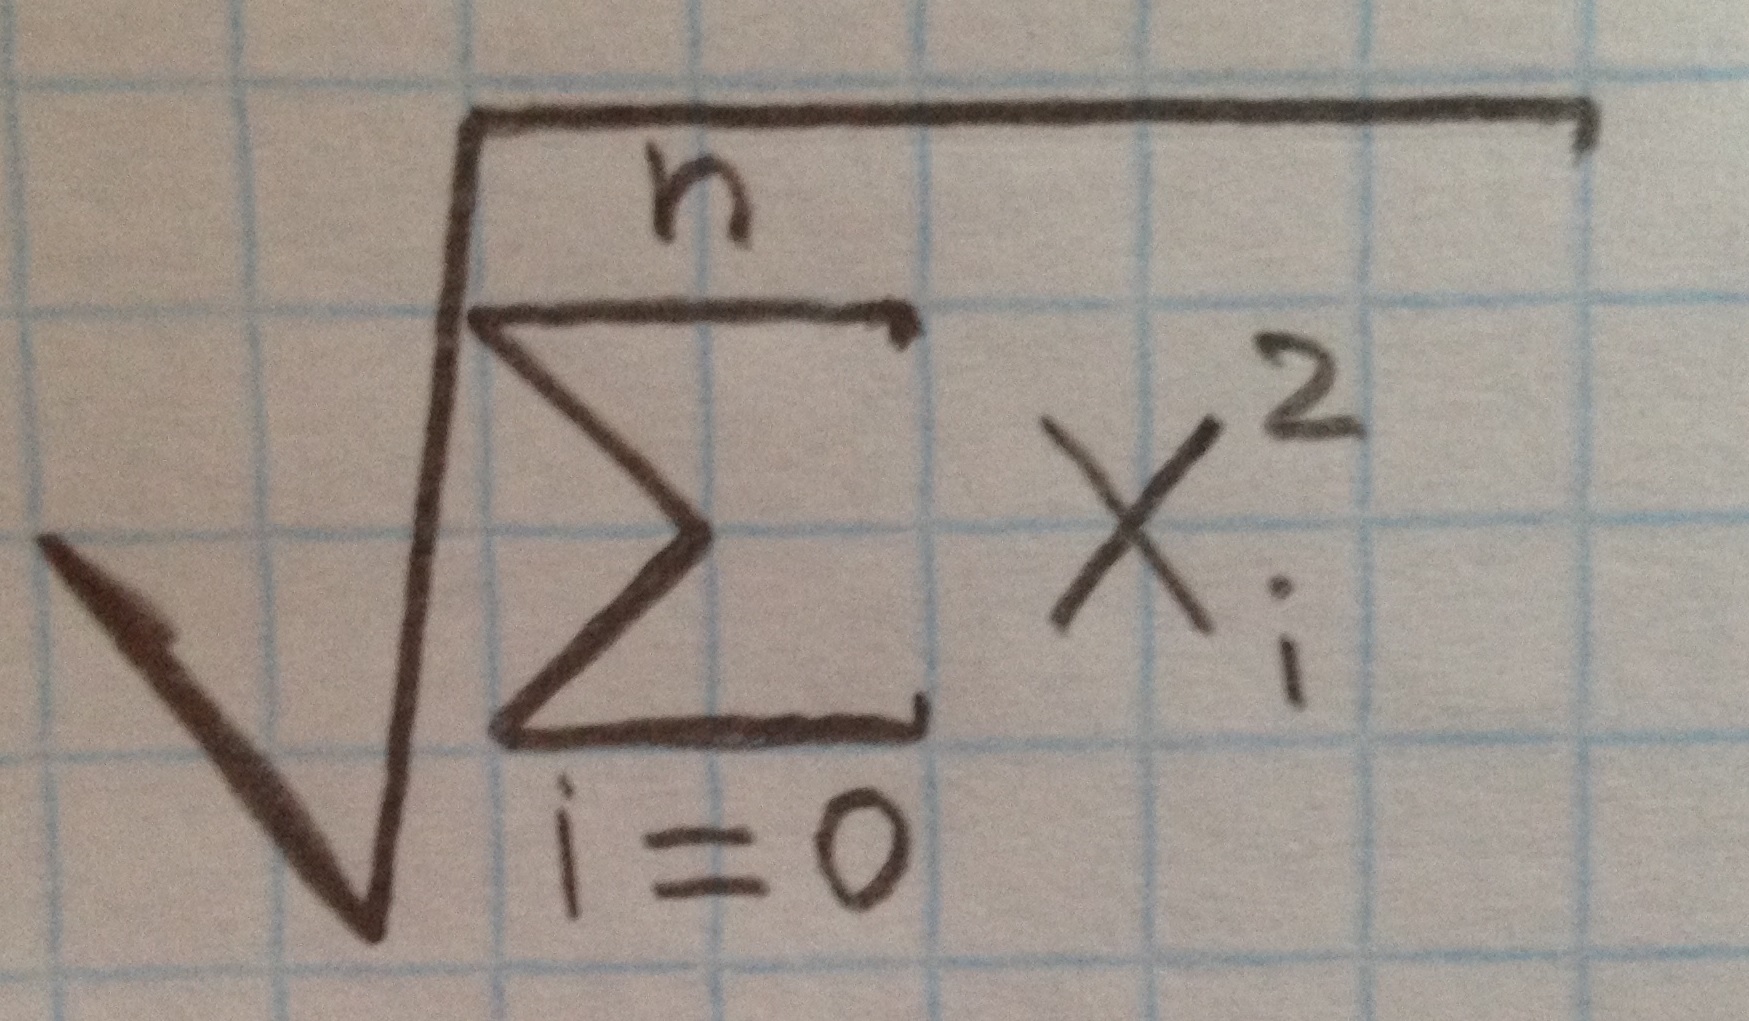 √(∑_{i=0}^{n} x_i^2)